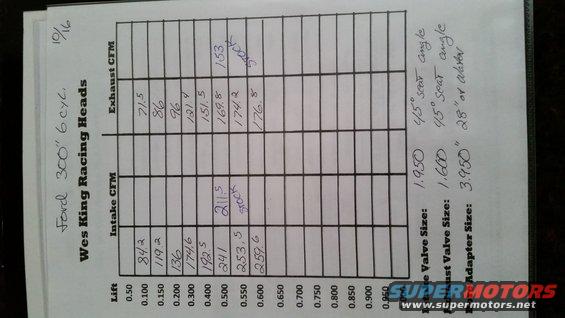 10/16
Ford 300" 6 cyl.
Wes King Racing Heads
Lift Intake CFM Exhaust CFM
0.50
0.100 84.2 71.5
0.150 119.2 86
0.200 136 96
0.300 174.6 121.4
0.400 192.5 151.5
0.500 241 211.5 169.8 153
0.550 253.5 stock 174.2 stock
0.600 259.6 176.8
0.650
0.700
0.750
0.800
0.850
0.900
0.950
Valve Size: 1.950 45° seat angle
Valve Size: 1.600 45° seat angle
Adapter Size: 3.950" 28" of water
SUPERMOTORS
www.supermotors.net